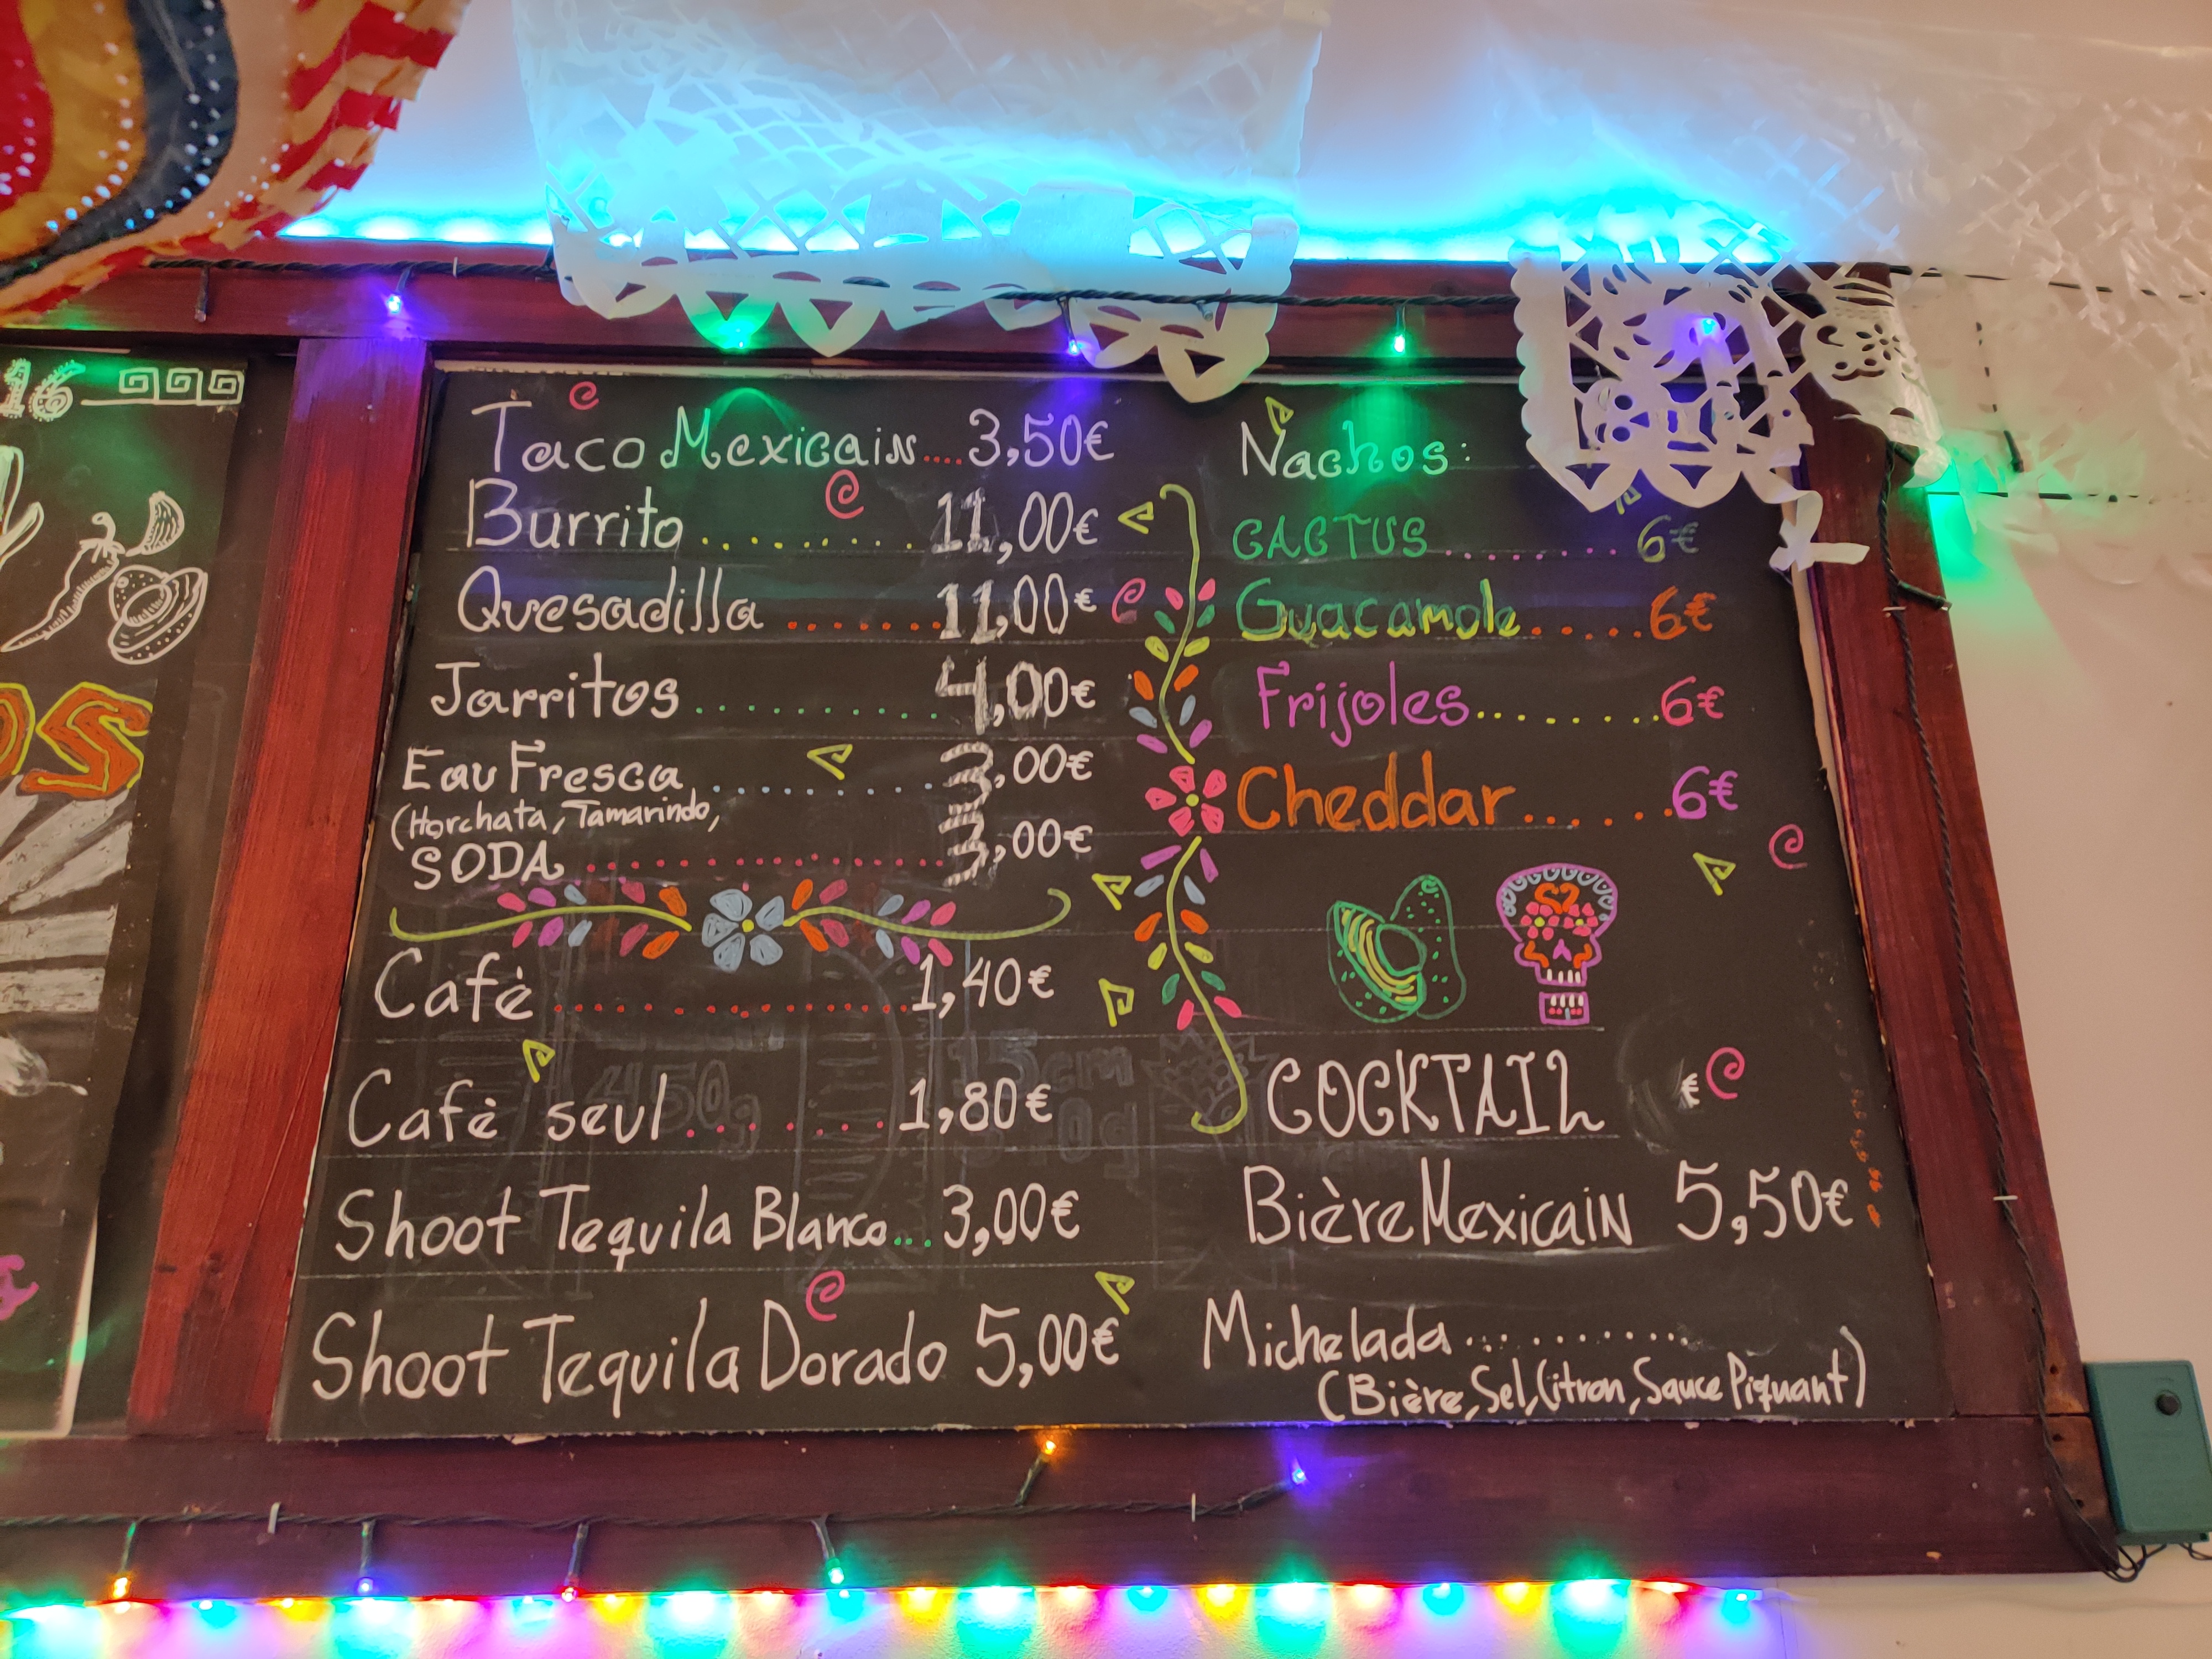 16
OS
Taco Mexicain....3,50€
Burrito.........11,00€
Quesadilla.......11,00€
Jarritos..........4,00€
Eau Fresca..........3,00€
(Horchata, Tamarindo,
SODA................3,00€
Cafè................1,40€
Cafè seul.......1,80€
Shoot Tequila Blanco...3,00€
Shoot Tequila Dorado 5,00€
Nachos:
CACTUS........6€
Guacamole.....6€
Frijoles........6€
Cheddar......6€
COCKTAIL €
Bière Mexicain 5,50€
Michelada..........
(Bière, Sel, Citron, Sauce Piquant)
450g
15cm